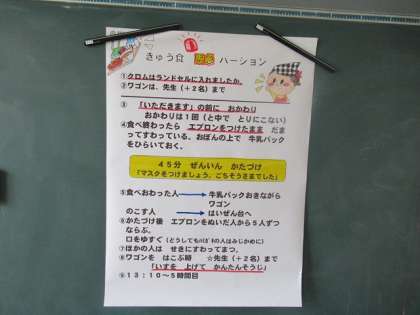 きゅう食 バージョン
①クロムはランドセルに入れましたか。
②ワゴンは、先生（＋２名）まで
③「いただきます」の前に おかわり
おかわりは１回（と中で とりにこない）
④食べ終わったら エプロンをつけたまま だま
ってすわっている。おぼんの上で 牛乳パック
をひらいておく。
４５分 ぜんいん かたづけ
「マスクをつけましょう。ごちそうさまでした」
⑤食べおわった人 牛乳パックおきながら
ワゴン
のこす人 はいぜん台へ
⑥かたづけ後 エプロンをぬいだ人から５人ずつ
ならぶ。
口をゆすぐ（どうしてもの人はみじかめに）
⑦ほかの人は せきにすわってまつ。
⑧ワゴンを はこぶ時 ☆先生（＋２名）まで
「いすを 上げて かんたんそうじ」
⑨１３：１０～５時間目